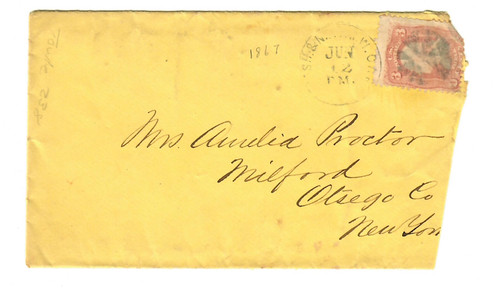 1867
JUN
12
P.M.
3
Mrs. Amelia Proctor
Milford
Otsego Co
New York